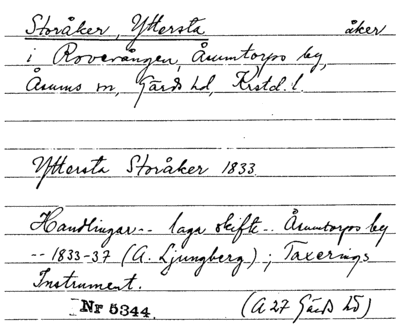 Storåker, Yttersta åker
i Rovevången, Årumtorps by,
Årums sn, Gärds hd, Krstd. l.
Yttersta Storåker 1833
Handlingar -- laga skifte -- Årumtorps by
-- 1833-37 (A. Ljungberg); Taxerings
Instrument.
Nr 5344. (A 27 Gärds hd)